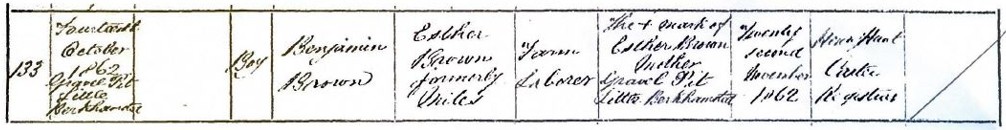 133
Fourteenth
October
1862
Gravel Pit
Little
Berkhamsted
Boy
Benjamin
Brown
Esther
Brown
formerly
Miles
Farm
Laborer
The + mark of
Esther Brown
Mother
Gravel Pit
Little Berkhamsted
Twenty
second
November
1862
Registrar